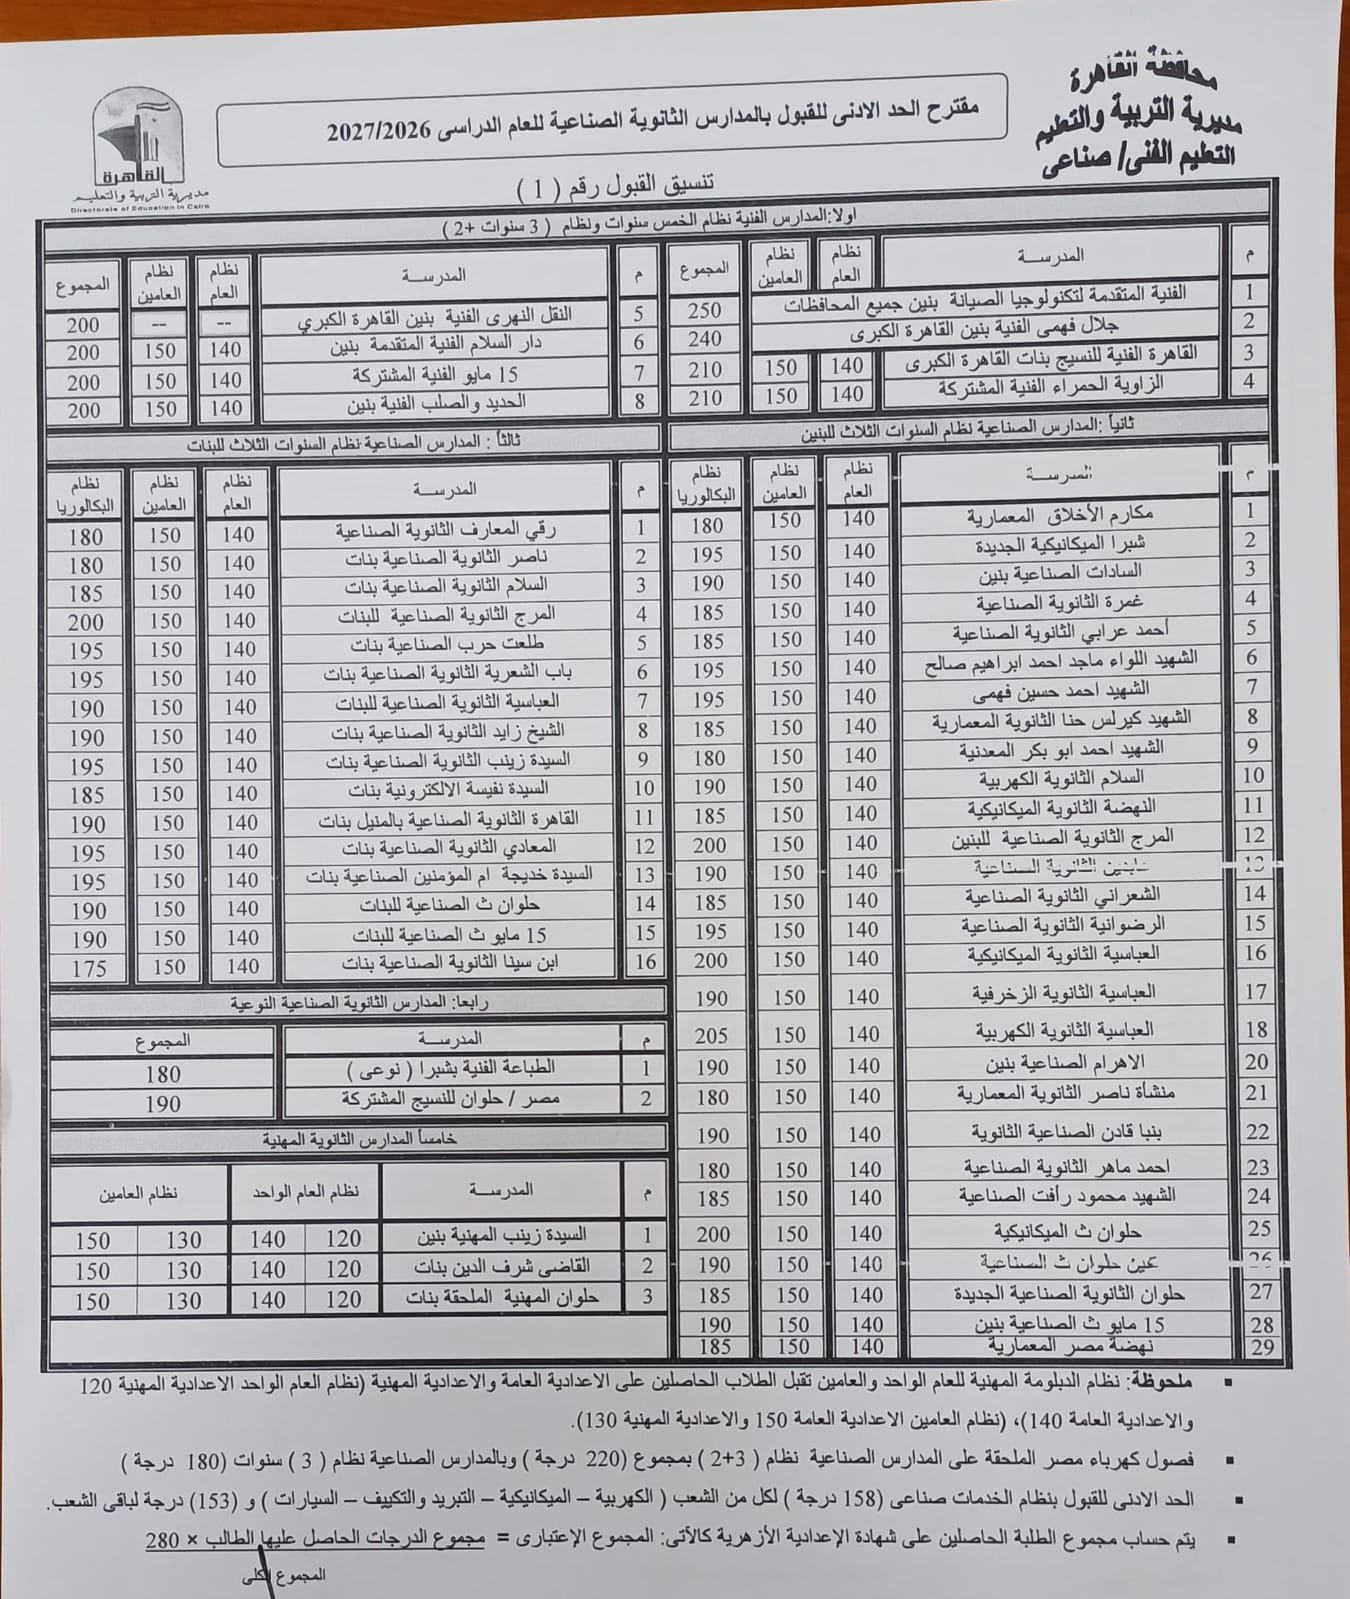 محافظة القاهرة
مديرية التربية والتعليم
التعليم الفنى/ صناعى
القاهرة
مديرية التربية والتعليم
Directorate of Education in Cairo
مقترح الحد الادنى للقبول بالمدارس الثانوية الصناعية للعام الدراسى 2027/2026
تنسيق القبول رقم ( 1 )
اولا:المدارس الفنية نظام الخمس سنوات ونظام ( 3 سنوات +2 )
م المدرســة نظام العام نظام العامين المجموع
1 الفنية المتقدمة لتكنولوجيا الصيانة بنين جميع المحافظات 250
2 جلال فهمى الفنية بنين القاهرة الكبرى 240
3 القاهرة الفنية للنسيج بنات القاهرة الكبرى 140 150 210
4 الزاوية الحمراء الفنية المشتركة 140 150 210
م المدرســة نظام العام نظام العامين المجموع
5 النقل النهرى الفنية بنين القاهرة الكبري -- -- 200
6 دار السلام الفنية المتقدمة بنين 140 150 200
7 15 مايو الفنية المشتركة 140 150 200
8 الحديد والصلب الفنية بنين 140 150 200
ثانياً :المدارس الصناعية نظام السنوات الثلاث للبنين
م المدرســة نظام العام نظام العامين نظام البكالوريا
1 مكارم الأخلاق المعمارية 140 150 180
2 شبرا الميكانيكية الجديدة 140 150 195
3 السادات الصناعية بنين 140 150 190
4 غمرة الثانوية الصناعية 140 150 185
5 أحمد عرابي الثانوية الصناعية 140 150 185
6 الشهيد اللواء ماجد احمد ابراهيم صالح 140 150 195
7 الشهيد احمد حسين فهمى 140 150 195
8 الشهيد كيرلس حنا الثانوية المعمارية 140 150 185
9 الشهيد احمد ابو بكر المعدنية 140 150 180
10 السلام الثانوية الكهربية 140 150 190
11 النهضة الثانوية الميكانيكية 140 150 185
12 المرج الثانوية الصناعية للبنين 140 150 200
13 عابدين الثانوية الصناعية 140 150 190
14 الشعراني الثانوية الصناعية 140 150 185
15 الرضوانية الثانوية الصناعية 140 150 195
16 العباسية الثانوية الميكانيكية 140 150 200
17 العباسية الثانوية الزخرفية 140 150 190
18 العباسية الثانوية الكهربية 140 150 205
20 الاهرام الصناعية بنين 140 150 190
21 منشأة ناصر الثانوية المعمارية 140 150 180
22 بنبا قادن الصناعية الثانوية 140 150 190
23 احمد ماهر الثانوية الصناعية 140 150 180
24 الشهيد محمود رأفت الصناعية 140 150 185
25 حلوان ث الميكانيكية 140 150 200
26 عين حلوان ث الصناعية 140 150 190
27 حلوان الثانوية الصناعية الجديدة 140 150 185
28 15 مايو ث الصناعية بنين 140 150 190
29 نهضة مصر المعمارية 140 150 185
ثالثاً : المدارس الصناعية نظام السنوات الثلاث للبنات
م المدرســة نظام العام نظام العامين نظام البكالوريا
1 رقي المعارف الثانوية الصناعية 140 150 180
2 ناصر الثانوية الصناعية بنات 140 150 180
3 السلام الثانوية الصناعية بنات 140 150 185
4 المرج الثانوية الصناعية للبنات 140 150 200
5 طلعت حرب الصناعية بنات 140 150 195
6 باب الشعرية الثانوية الصناعية بنات 140 150 195
7 العباسية الثانوية الصناعية للبنات 140 150 190
8 الشيخ زايد الثانوية الصناعية بنات 140 150 190
9 السيدة زينب الثانوية الصناعية بنات 140 150 195
10 السيدة نفيسة الالكترونية بنات 140 150 185
11 القاهرة الثانوية الصناعية بالمنيل بنات 140 150 190
12 المعادي الثانوية الصناعية بنات 140 150 195
13 السيدة خديجة ام المؤمنين الصناعية بنات 140 150 195
14 حلوان ث الصناعية للبنات 140 150 190
15 15 مايو ث الصناعية للبنات 140 150 190
16 ابن سينا الثانوية الصناعية بنات 140 150 175
رابعا: المدارس الثانوية الصناعية النوعية
م المدرســة المجموع
1 الطباعة الفنية بشبرا ( نوعى ) 180
2 مصر / حلوان للنسيج المشتركة 190
خامساً المدارس الثانوية المهنية
م المدرســة نظام العام الواحد نظام العامين
1 السيدة زينب المهنية بنين 120 140 130 150
2 القاضى شرف الدين بنات 120 140 130 150
3 حلوان المهنية الملحقة بنات 120 140 130 150
ملحوظة: نظام الدبلومة المهنية للعام الواحد والعامين تقبل الطلاب الحاصلين على الاعدادية العامة والاعدادية المهنية (نظام العام الواحد الاعدادية المهنية 120
والاعدادية العامة 140)، (نظام العامين الاعدادية العامة 150 والاعدادية المهنية 130).
فصول كهرباء مصر الملحقة على المدارس الصناعية نظام ( 3+2 ) بمجموع (220 درجة ) وبالمدارس الصناعية نظام ( 3 ) سنوات (180 درجة )
الحد الادنى للقبول بنظام الخدمات صناعى (158 درجة ) لكل من الشعب ( الكهربية – الميكانيكية – التبريد والتكييف – السيارات ) و (153) درجة لباقى الشعب.
يتم حساب مجموع الطلبة الحاصلين على شهادة الإعدادية الأزهرية كالآتى: المجموع الإعتبارى = مجموع الدرجات الحاصل عليها الطالب × 280
المجموع الكلى